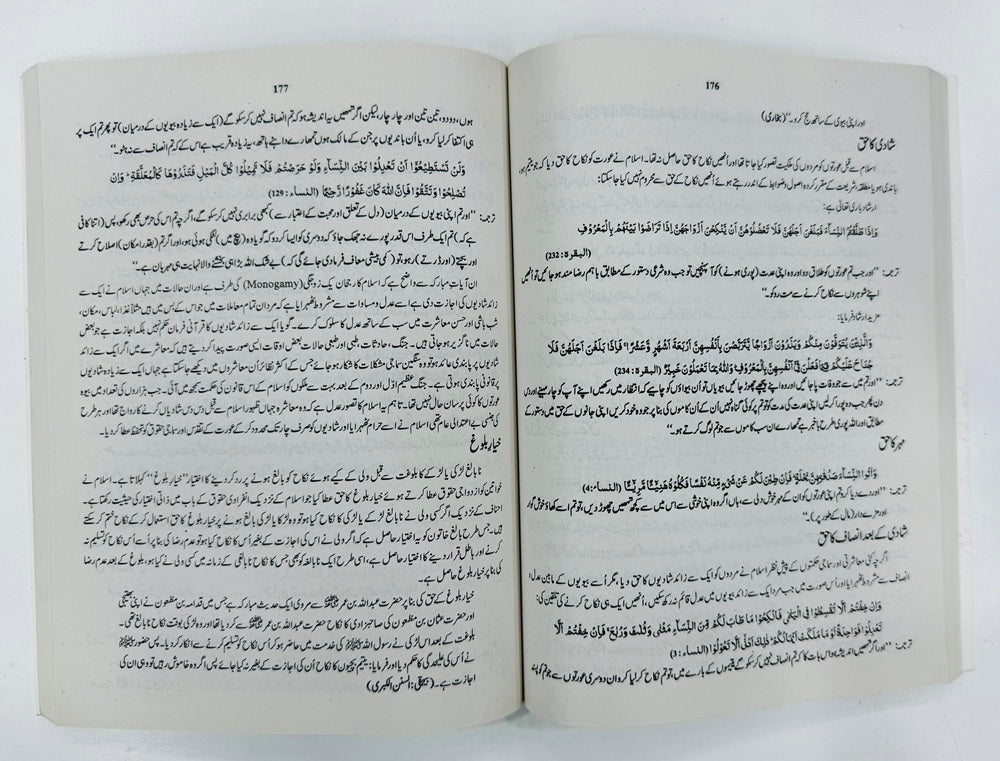 176
اور اپنی بیوی کے ساتھ حج کرو۔‘‘ (بخاری)
شادی کا حق
اسلام سے قبل عورتوں کو مردوں کی ملکیت تصور کیا جاتا تھا اور انھیں نکاح کا حق حاصل نہ تھا۔ اسلام نے عورت کو نکاح کا حق دیا کہ جو یتیم ہو،
باندی ہو یا مطلقہ، شریعت کے مقرر کردہ اصول و ضوابط کے اندر رہتے ہوئے انھیں نکاح کے حق سے محروم نہیں کیا جا سکتا:
ارشاد باری تعالیٰ ہے:
وَاِذَا طَلَّقْتُمُ النِّسَآءَ فَبَلَغْنَ اَجَلَهُنَّ فَلَا تَعْضُلُوْهُنَّ اَنْ يَّنْكِحْنَ اَزْوَاجَهُنَّ اِذَا تَرَاضَوْا بَيْنَهُمْ بِالْمَعْرُوْفِ
(البقرة: 232)
ترجمہ: ’’اور جب تم عورتوں کو طلاق دو اور وہ اپنی عدت (پوری ہونے) کو آ پہنچیں تو جب وہ شرعی دستور کے مطابق باہم رضا مند ہو جائیں تو انھیں
اپنے شوہروں سے نکاح کرنے سے مت روکو۔‘‘
مزید ارشاد فرمایا:
وَالَّذِيْنَ يُتَوَفَّوْنَ مِنْكُمْ وَيَذَرُوْنَ اَزْوَاجًا يَّتَرَبَّصْنَ بِاَنْفُسِهِنَّ اَرْبَعَةَ اَشْهُرٍ وَّعَشْرًا ۚ فَاِذَا بَلَغْنَ اَجَلَهُنَّ فَلَا
جُنَاحَ عَلَيْكُمْ فِيْمَا فَعَلْنَ فِيْٓ اَنْفُسِهِنَّ بِالْمَعْرُوْفِ ۗ وَاللّٰهُ بِمَا تَعْمَلُوْنَ خَبِيْرٌ (البقرة: 234)
ترجمہ: ’’اور تم میں سے جو وفات پا جائیں اور وہ اپنے پیچھے چھوڑ جائیں بیویاں تو ان بیواؤں کو چاہیے کہ انتظار میں رکھیں اپنے آپ کو چار مہینے اور دس
دن پھر جب وہ پورا کر لیں اپنی عدت کی مدت کو تو تم پر کوئی گناہ نہیں اُن کے اُن کاموں کی بنا پر جو وہ خود کریں اپنی جانوں کے حق میں دستور کے
مطابق اور اللہ پوری طرح باخبر ہے تمھارے ان سب کاموں سے جو تم لوگ کرتے ہو۔‘‘
مہر کا حق
وَاٰتُوا النِّسَآءَ صَدُقٰتِهِنَّ نِحْلَةً ۭ فَاِنْ طِبْنَ لَكُمْ عَنْ شَيْءٍ مِّنْهُ نَفْسًا فَكُلُوْهُ هَنِيْۗـــًٔـا مَّرِيْۗـــًٔـا (النساء: 4)
ترجمہ: ’’اور دے دیا کرو تم اپنی عورتوں کو ان کے مہر خوش دلی سے، ہاں اگر وہ اپنی خوشی سے اس میں سے کچھ تمھیں چھوڑ دیں، تو تم اسے کھاؤ خوش گوار
اور مزے دار (مال کے طور پر)۔‘‘
شادی کے بعد انصاف کا حق
اگرچہ کئی معاشرتی اور سماجی حکمتوں کے پیش نظر اسلام نے مردوں کو ایک سے زائد شادیوں کا حق دیا، مگر اُسے بیویوں کے مابین عدل و
انصاف سے مشروط ٹھہرایا اور اُس صورت میں جب مرد ایک سے زائد بیویوں میں عدل قائم نہ رکھ سکیں، اُنھیں ایک ہی نکاح کرنے کی تلقین کی:
وَاِنْ خِفْتُمْ اَلَّا تُقْسِطُوْا فِي الْيَتٰمٰى فَانْكِحُوْا مَا طَابَ لَكُمْ مِّنَ النِّسَآءِ مَثْنٰى وَثُلٰثَ وَرُبٰعَ ۚ فَاِنْ خِفْتُمْ اَلَّا
تَعْدِلُوْا فَوَاحِدَةً اَوْ مَا مَلَكَتْ اَيْمَانُكُمْ ۭ ذٰلِكَ اَدْنٰٓى اَلَّا تَعُوْلُوْا (النساء: 3)
ترجمہ: ’’اور اگر تمھیں اندیشہ ہو اس بات کا کہ تم انصاف نہیں کر سکو گے یتیموں کے بارے میں، تو تم نکاح کر لیا کرو ان دوسری عورتوں سے جو تم کو پسند
177
ہوں، دو دو، تین تین اور چار چار، لیکن اگر تمھیں یہ اندیشہ ہو کہ تم انصاف نہیں کر سکو گے (ایک سے زیادہ بیویوں کے درمیان) تو پھر تم ایک پر
ہی اکتفا کر لیا کرو، یا اُن باندیوں پر جن کے مالک ہوں تمھارے داہنے ہاتھ، یہ زیادہ قریب ہے اس کے کہ تم انصاف سے نہ ہٹو۔‘‘
وَلَنْ تَسْتَطِيْعُوْٓا اَنْ تَعْدِلُوْا بَيْنَ النِّسَاۗءِ وَلَوْ حَرَصْتُمْ فَلَا تَمِيْلُوْا كُلَّ الْمَيْلِ فَتَذَرُوْهَا كَالْمُعَلَّقَةِ ۭ وَاِنْ
تُصْلِحُوْا وَتَتَّقُوْا فَاِنَّ اللّٰهَ كَانَ غَفُوْرًا رَّحِيْمًا (النساء: 129)
ترجمہ: ’’اور تم اپنی بیویوں کے درمیان (دل کے تعلق اور محبت کے اعتبار سے) کبھی برابری نہیں کر سکو گے، اگرچہ تم اس کی حرص بھی رکھو، پس (اتنا کافی
ہے کہ) تم ایک طرف اس قدر پورے نہ جھک جاؤ کہ دوسری کو ایسا کر دو کہ گویا وہ (بیچ میں) لٹکی ہوئی ہو، اور اگر تم (بقدر امکان) اصلاح کرتے
اور بچتے (اور ڈرتے) رہو تو (کمی بیشی معاف فرما دی جائے گی کہ) بے شک اللہ بڑا ہی بخشنے والا نہایت ہی مہربان ہے۔‘‘
ان آیات مبارکہ سے واضح ہے کہ اسلام کا رجحان یک زوجگی (Monogamy) کی طرف ہے اور ان حالات میں جہاں اسلام نے ایک سے
زائد شادیوں کی اجازت دی ہے اسے عدل و مساوات سے مشروط ٹھہرایا ہے کہ مرد ان تمام معاملات میں جو اس کے بس میں ہیں مثلاً غذا، لباس، مکان،
شب باشی اور حسن معاشرت میں سب کے ساتھ عدل کا سلوک کرے۔ گویا ایک سے زائد شادیوں کا قرآنی فرمان حکم نہیں بلکہ اجازت ہے جو بعض
حالات میں ناگزیر ہو جاتی ہیں۔ جنگ، حادثات، طبی اور طبعی حالات بعض اوقات ایسی صورت پیدا کر دیتے ہیں کہ معاشرے میں اگر ایک سے زائد
شادیوں پر پابندی عائد ہو تو وہ سنگین سماجی مشکلات کا شکار ہو جائے جس کے اکثر نظائر اُن معاشروں میں دیکھے جا سکتے ہیں جہاں ایک سے زیادہ شادیوں
پر قانونی پابندی ہوتی ہے۔ جنگ عظیم اوّل اور دوم کے بعد بہت سے ملکوں کو اسلام کے اس قانون کی حکمت سمجھ میں آئی۔ جب ہزاروں کی تعداد میں بیوہ
عورتوں کا کوئی پرسان حال نہیں تھا۔ تاہم یہ اسلام کا تصور عدل ہے کہ وہ معاشرہ جہاں ظہور اسلام سے قبل دس دس شادیاں کرنے کا رواج تھا اور ہر طرح
کی جنسی بے اعتدالی عام تھی اسلام نے اسے حرام ٹھہرایا اور شادیوں کو صرف چار تک محدود کر کے عورت کے تقدس اور سماجی حقوق کو تحفظ عطا کر دیا۔
خیار بلوغ
نابالغ لڑکی یا لڑکے کا بلوغت سے قبل ولی کے کیے ہوئے نکاح کو بالغ ہونے پر رد کر دینے کا اختیار ’’خیار بلوغ‘‘ کہلاتا ہے۔ اسلام نے
خواتین کو ازدواجی حقوق عطا کرتے ہوئے خیار بلوغ کا حق عطا کیا جو اسلام کے نزدیک انفرادی حقوق کے باب میں ذاتی اختیار کی حیثیت رکھتا ہے۔
احناف کے نزدیک اگر کسی ولی نے نابالغ لڑکے یا لڑکی کا نکاح کیا ہو تو وہ لڑکا یا لڑکی بالغ ہونے پر خیار بلوغ کا حق استعمال کر کے نکاح ختم کر سکتے
ہیں۔ جس طرح بالغ خاتون کو یہ اختیار حاصل ہے کہ اگر ولی نے اس کی اجازت کے بغیر اُس کا نکاح کیا ہو تو عدم رضا کی بنا پر اُسے اُس نکاح کو تسلیم نہ
کرنے اور باطل قرار دینے کا اختیار حاصل ہے، اسی طرح ایک نابالغہ کو بھی جس کا نکاح نابالغی کے زمانہ میں کسی ولی نے کیا ہو، بلوغ کے بعد عدم رضا
کی بنا پر خیار بلوغ حاصل ہے۔
خیار بلوغ کے حق کی بنا پر حضرت عبد اللہ بن عمر سے مروی ایک حدیث مبارکہ ہے جس میں قدامہ بن مظعون نے اپنی بھتیجی
اور حضرت عثمان بن مظعون کی صاحبزادی کا نکاح حضرت عبد اللہ بن عمر سے کر دیا تھا اور وہ لڑکی بوقت نکاح نابالغ تھی۔
بلوغت کے بعد اس لڑکی نے رسول اللہ ﷺ کی خدمت میں حاضر ہو کر اُس نکاح کو تسلیم کرنے سے انکار کر دیا۔ پس حضور ﷺ
نے اُس کی علیحدگی کا حکم دیا اور فرمایا: یتیم بچیوں کا نکاح اُن کی اجازت کے بغیر نہ کیا جائے پس اگر وہ خاموش رہیں تو وہی ان کی
اجازت ہے۔ (بیہقی: السنن الکبریٰ)